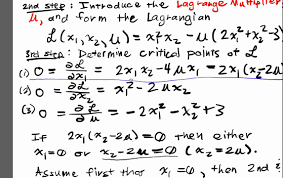 2nd step : Introduce the Lagrange Multiplier,
μ, and form the Lagrangian
ℒ(x₁,x₂,μ) = x₁²x₂ - μ(2x₁²+x₂²-3)
3rd step : Determine critical points of ℒ
(1) 0 = ∂ℒ/∂x₁ = 2x₁x₂-4μx₁ = 2x₁(x₂-2μ)
(2) 0 = ∂ℒ/∂x₂ = x₁²-2μx₂
(3) 0 = ∂ℒ/∂μ = -2x₁²-x₂²+3
If 2x₁(x₂-2μ)=0 then either
x₁=0 or x₂-2μ=0 (x₂=2μ).
Assume first that x₁=0, then 2nd